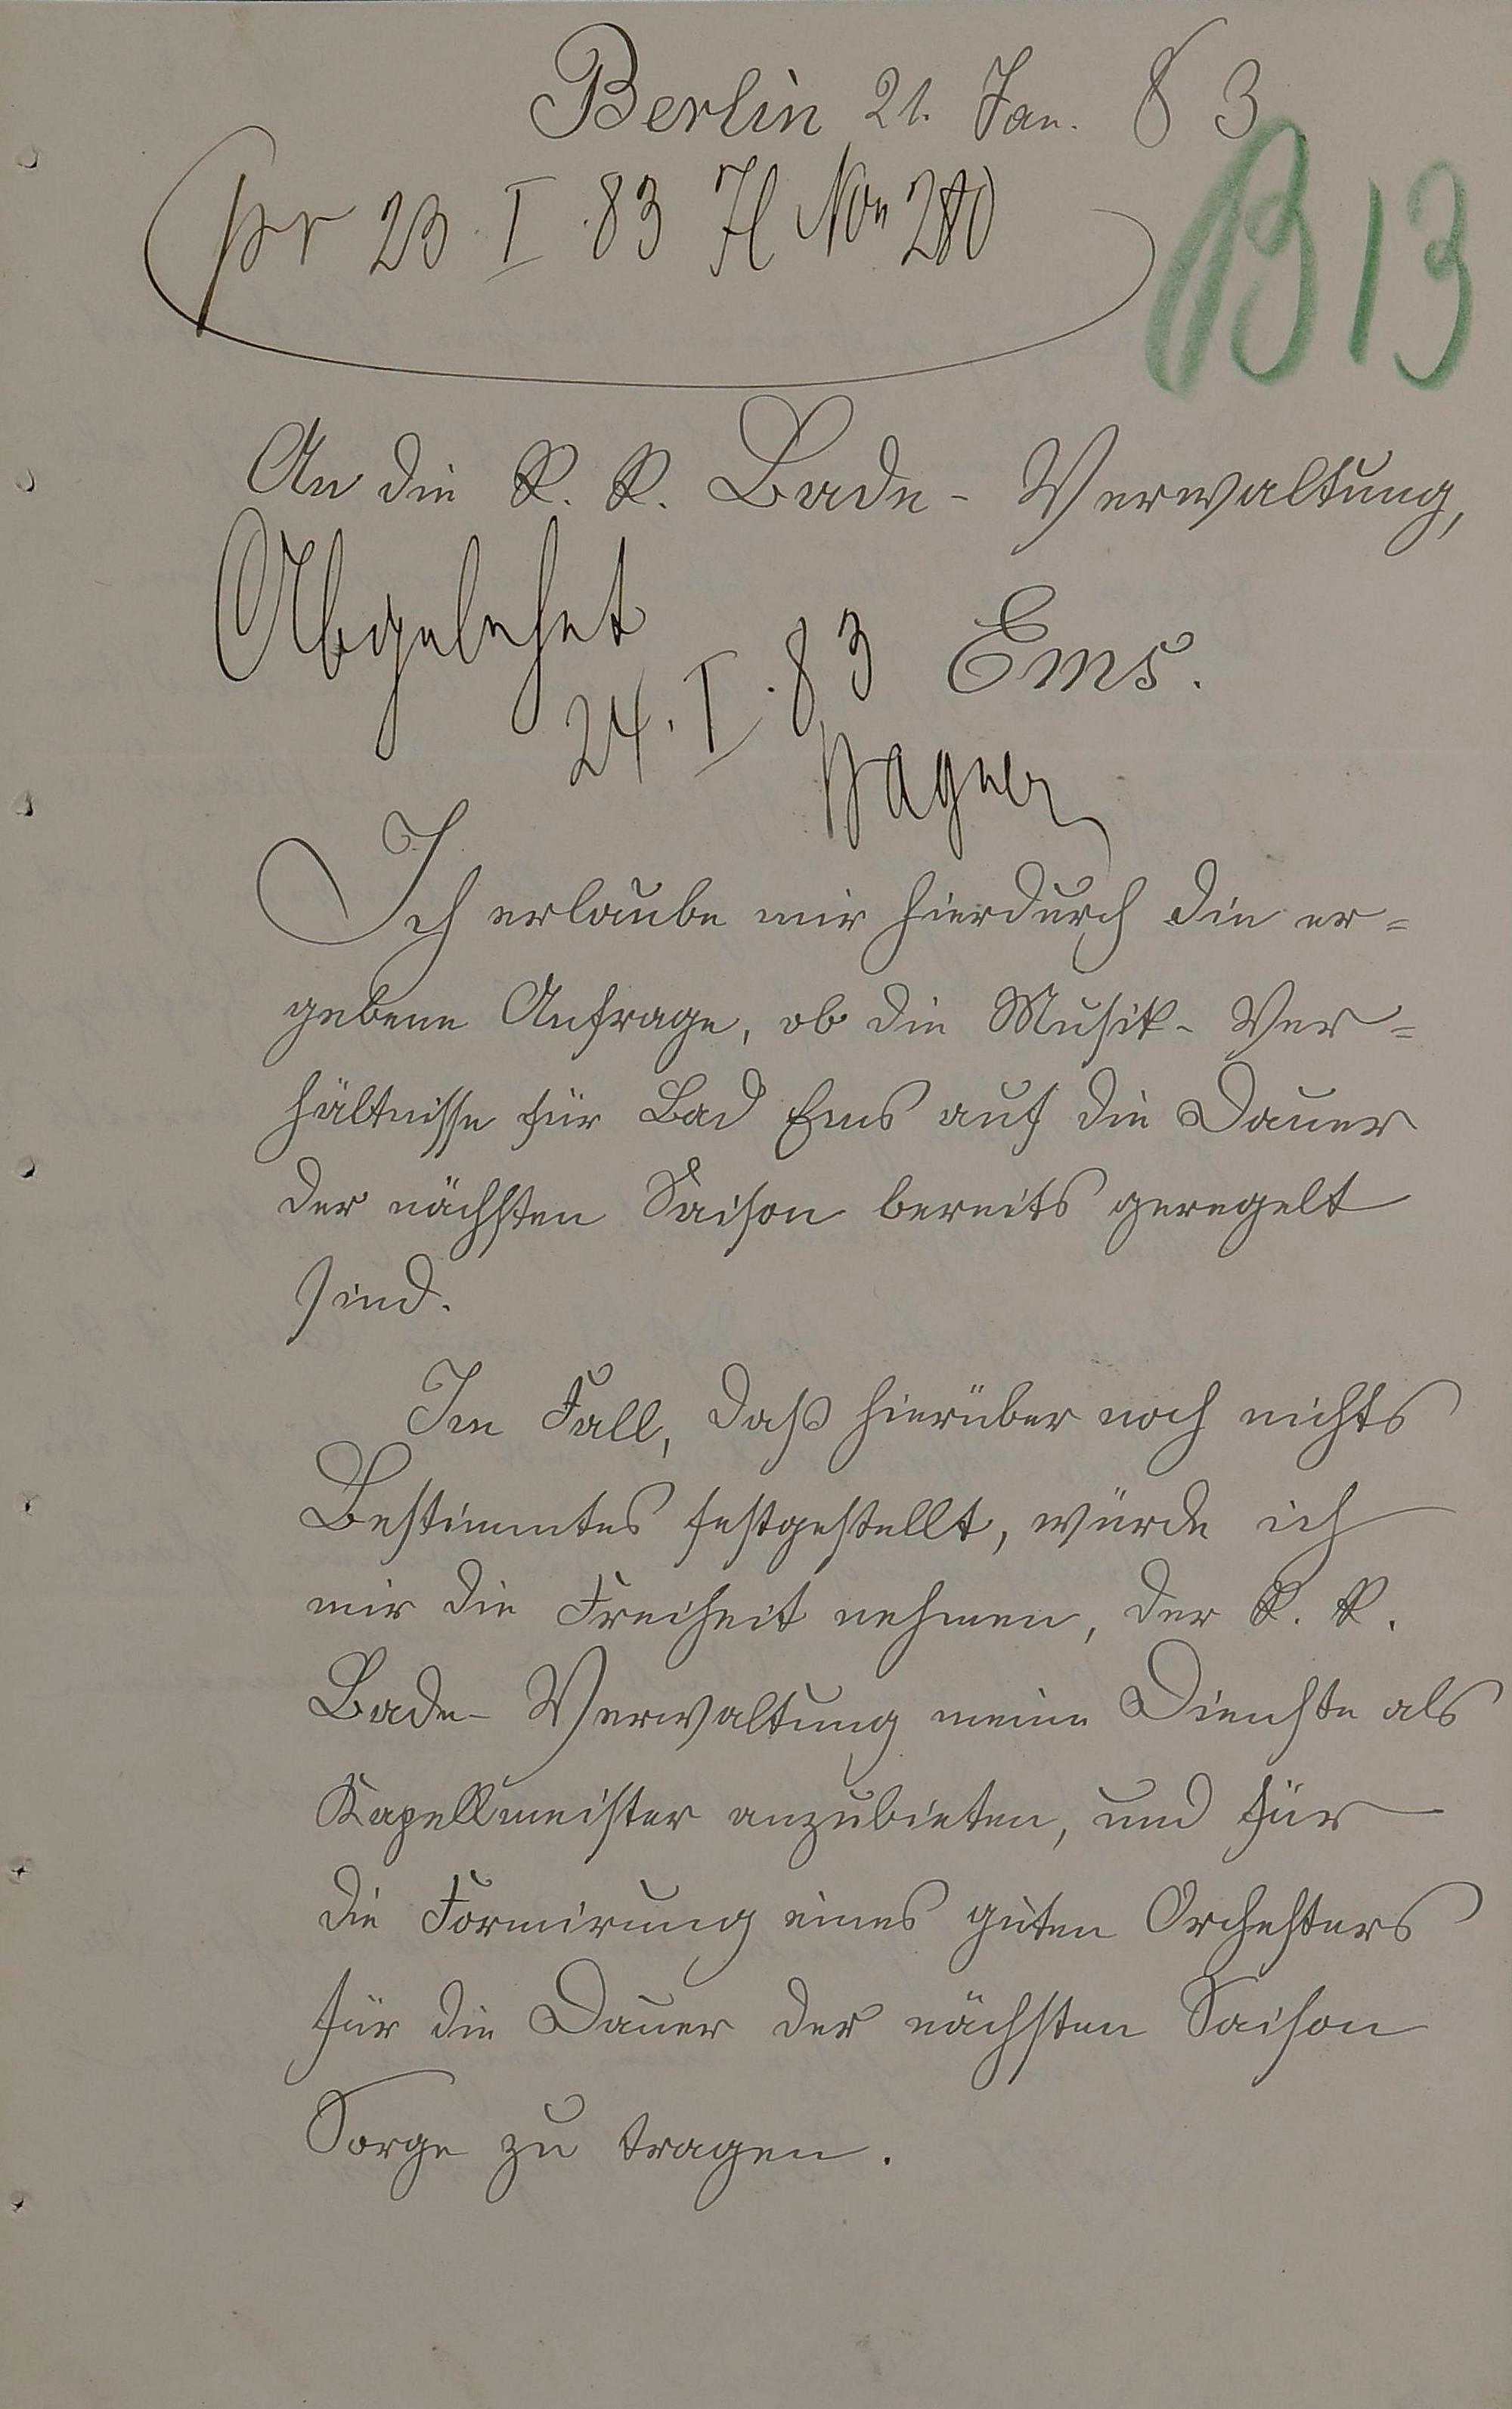 Berlin 21. Jan. 83
pr 23. I. 83 No 280
B 13
An die K. K. Bade-Verwaltung,
Abgelehnt
Ems.
24. I. 83
Wagner
Ich erlaube mir hierdurch die er=
gebene Anfrage, ob die Musik-Ver=
hältnisse für Bad Ems auf die Dauer
der nächsten Saison bereits geregelt
sind.
Im Fall, daß hierüber noch nichts
Bestimmtes festgestellt, würde ich
mir die Freiheit nehmen, der K. K.
Bade-Verwaltung meine Dienste als
Kapellmeister anzubieten, und für
die Formirung eines guten Orchesters
für die Dauer der nächsten Saison
Sorge zu tragen.